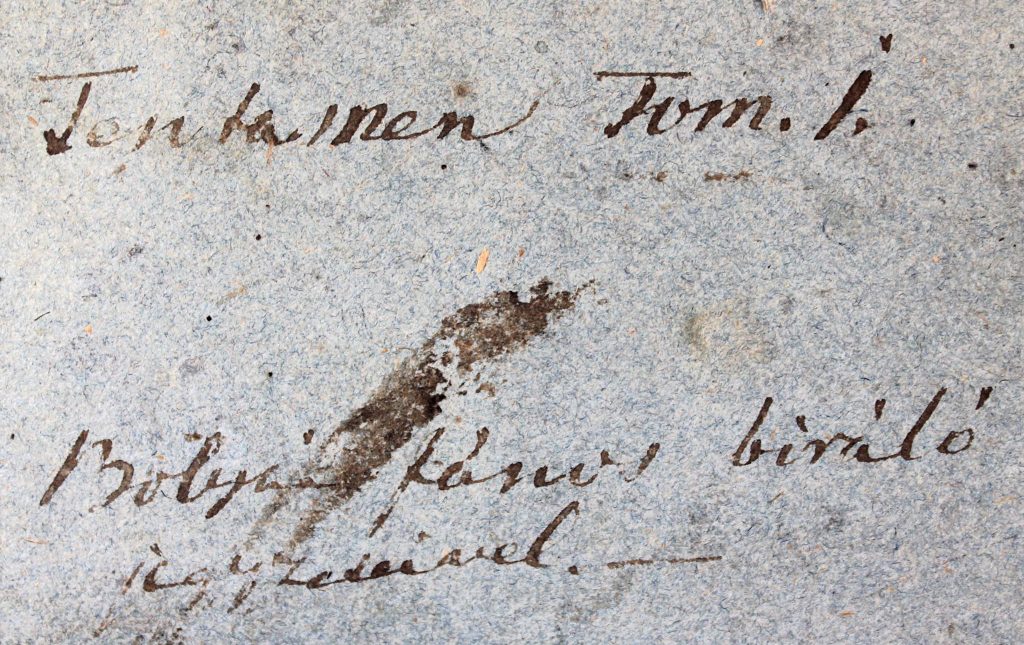 Tentamen Tom. I.
Bólyai János biráló
jegyzeteivel. —